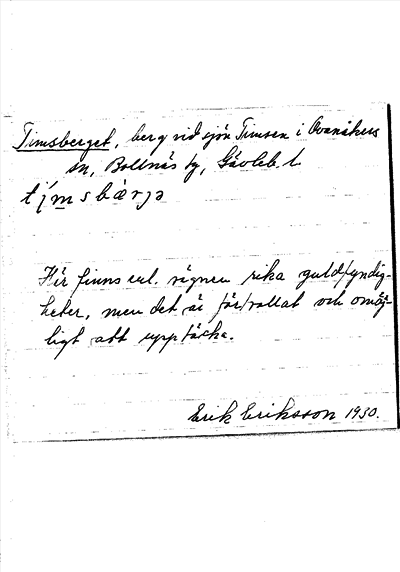 Timsberget, berg vid sjön Timsen i Ovanåkers
sn, Bollnäs tg, Gävleb. l.
tímsbàrjə
Här finns enl. sägnen rika guldfyndig-
heter, men det är förtrollat och omöj-
ligt att upptäcka.
Erik Eriksson 1930.